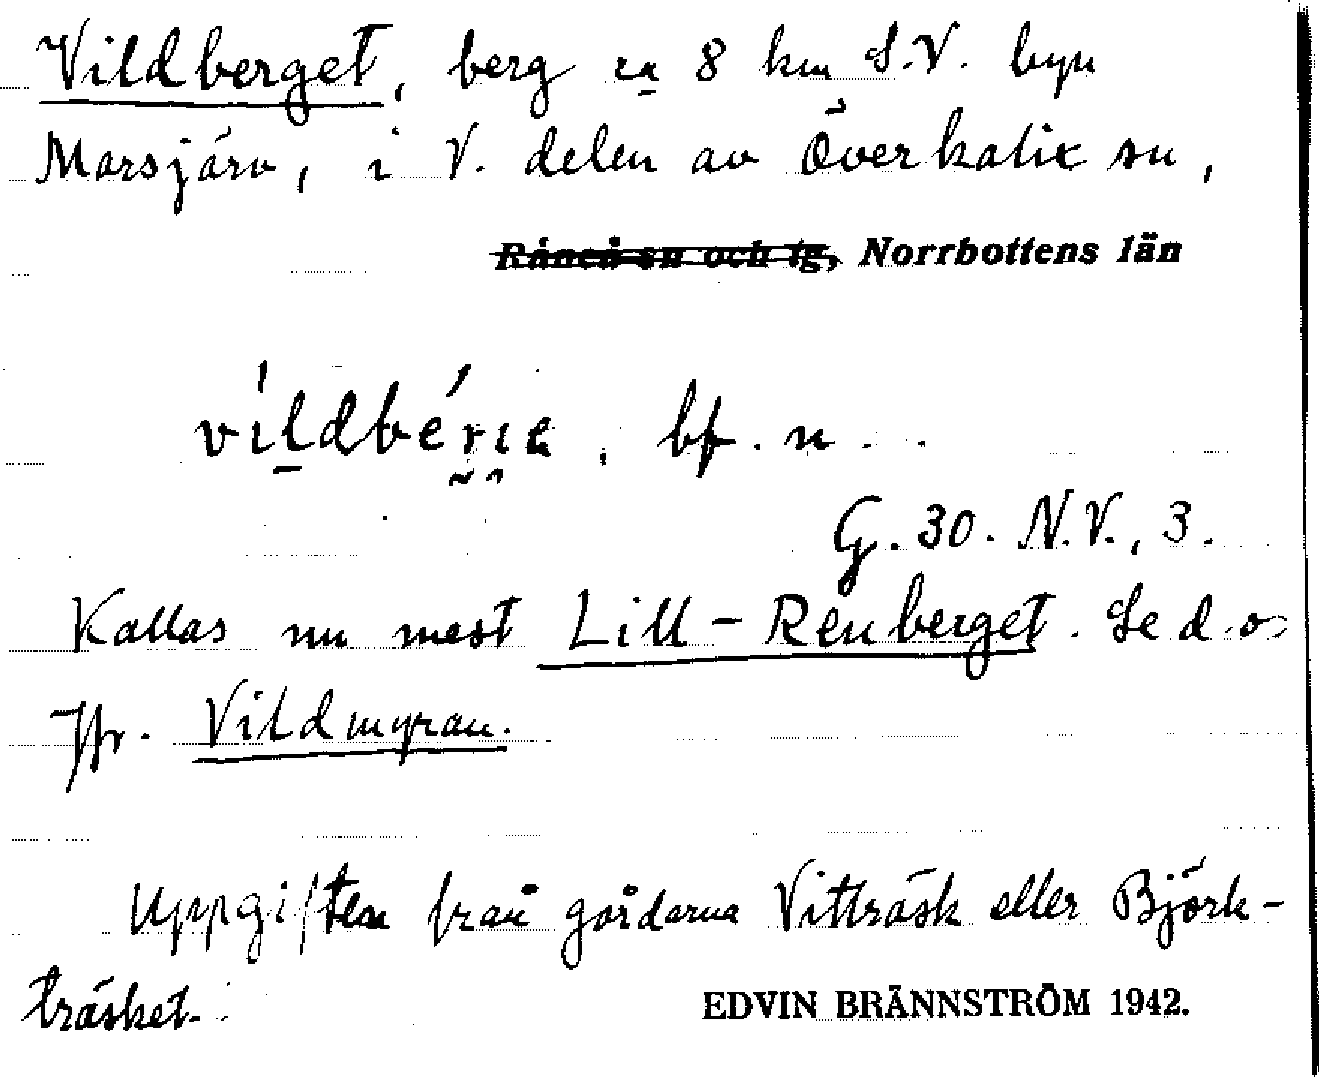 Vildberget, berg ca 8 km S.V. byn
Marsjärv, i V. delen av Överkalix sn,
Råneå sn och tg, Norrbottens län
bf. n.
G. 30. N.V., 3.
Kallas nu mest Lill-Renberget. Se d.o.
Jfr. Vildmyran.
Uppgiften från gårdarna Vitträsk eller Björk-
träsket.
EDVIN BRÄNNSTRÖM 1942.